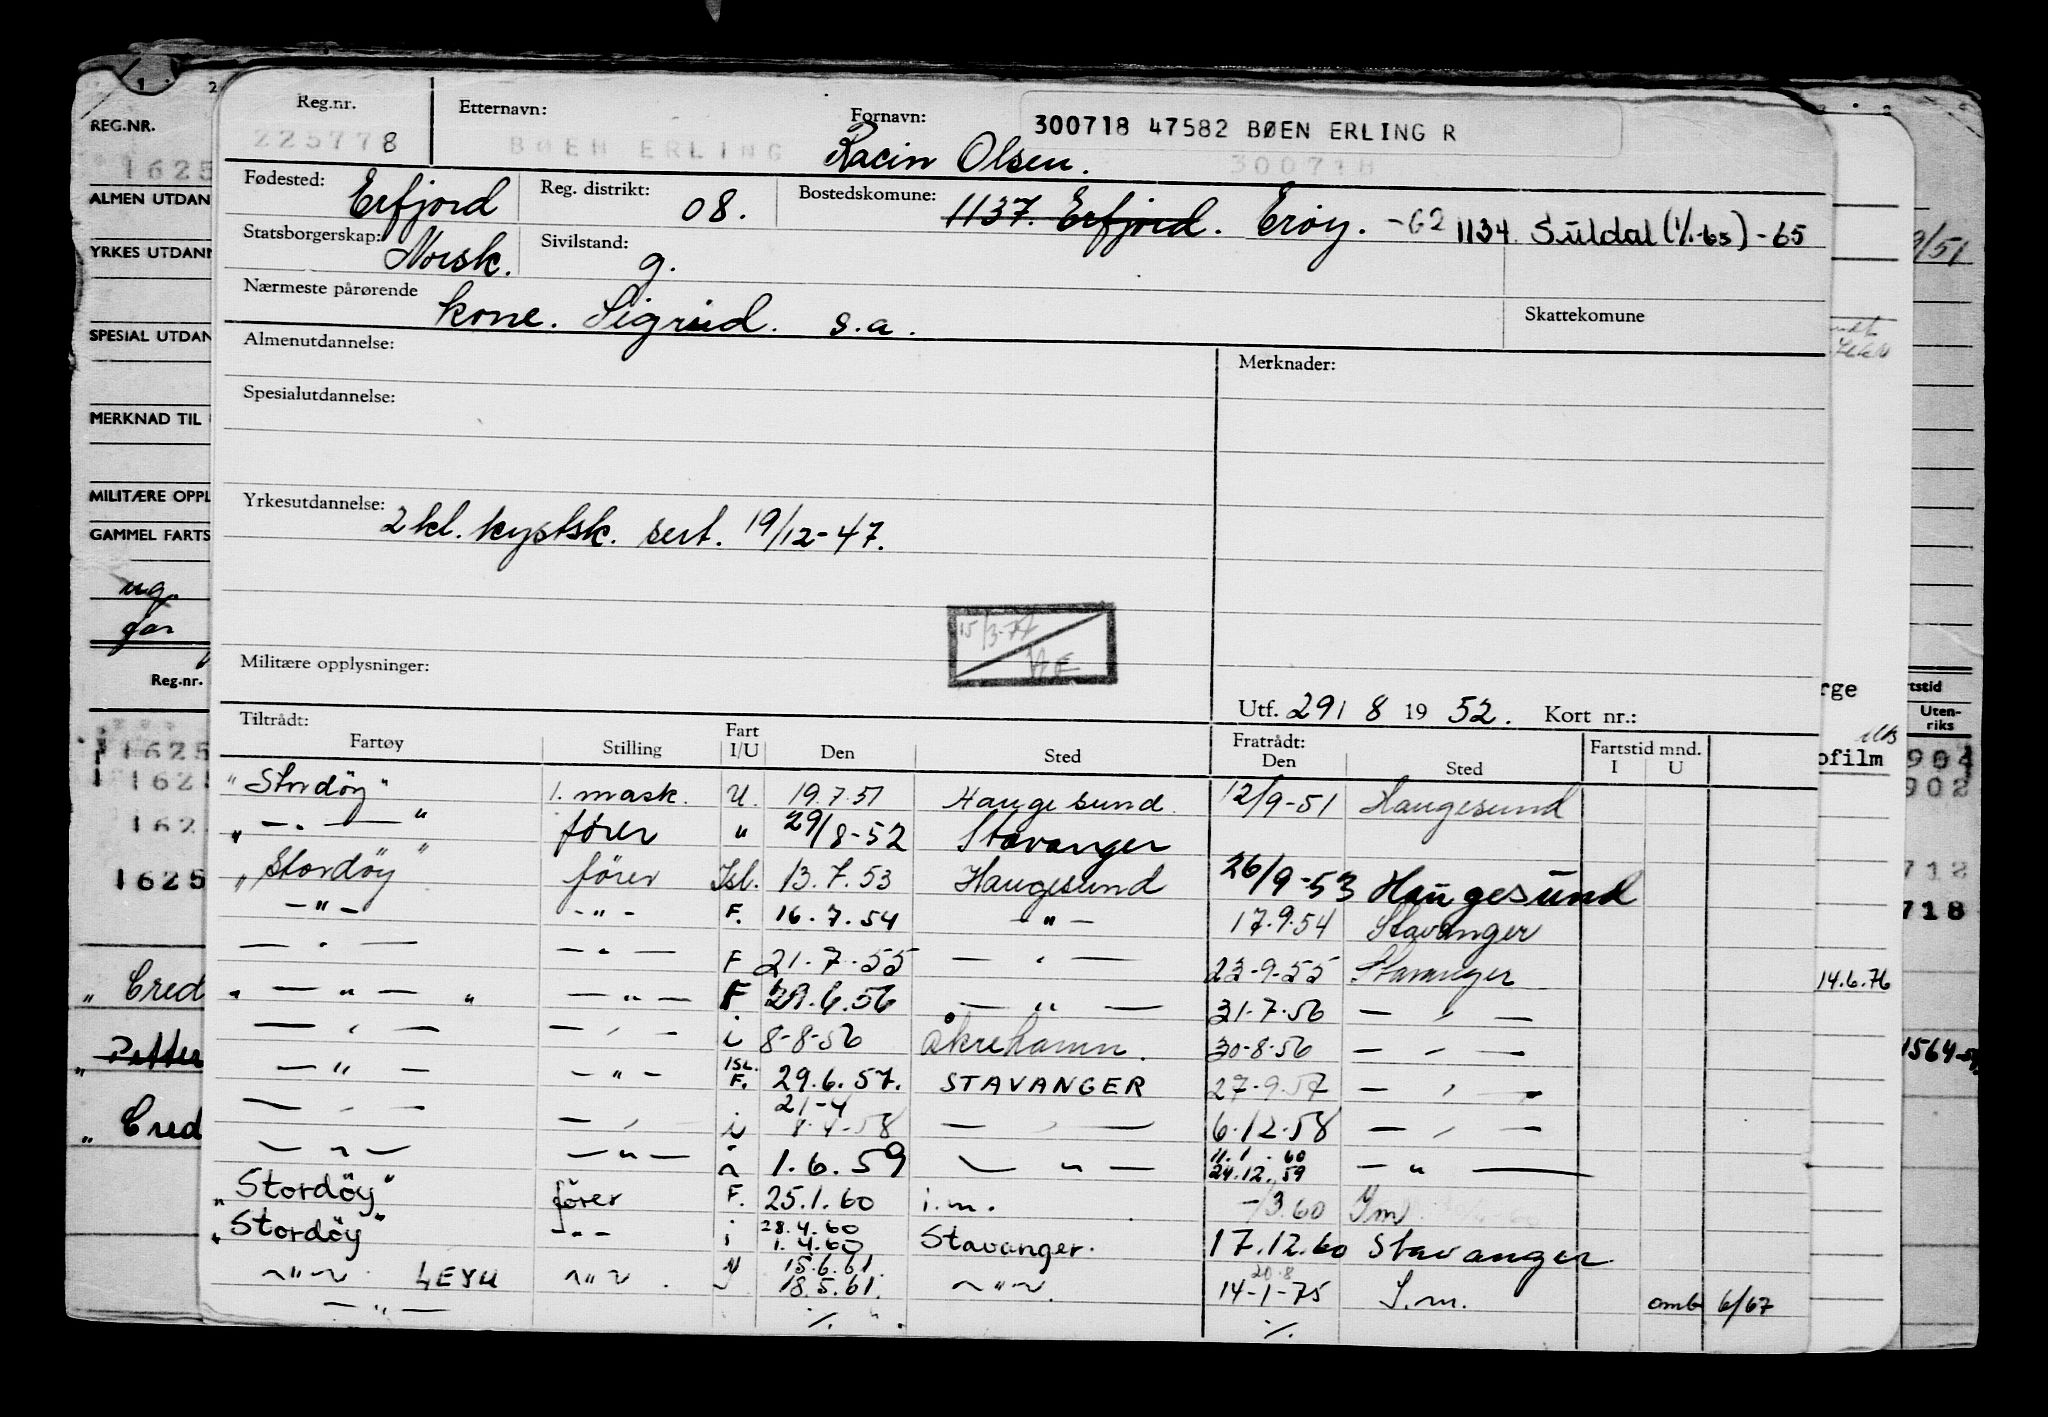 1 2
REG.NR.
1625
ALMEN UTDAN
YRKES UTDANN
SPESIAL UTDAN
MERKNAD TIL
MILITÆRE OPPL
GAMMEL FARTS
Reg.nr.
1625
1625
162
1625
„ Cred
„ Petter
„ Cred
Reg.nr. Etternavn: Fornavn: 300718 47582 BØEN ERLING R
225778 BØEN ERLING Racin Olsen. 300718
Fødested: Erfjord Reg. distrikt: 08. Bostedskomune: 1137. Erfjord. Erøy. -62 1134 Suldal (1/1-65) -65
Statsborgerskap: Norsk. Sivilstand: g.
Nærmeste pårørende kone. Sigrid. s.a. Skattekomune
Almenutdannelse: Merknader:
Spesialutdannelse:
Yrkesutdannelse: 2 kl. kystsk. sert. 19/12-47.
15/3-77
Militære opplysninger:
Utf. 29/ 8 19 52. Kort nr.:
Tiltrådt: Fratrådt: Fartstid mnd.
Fartøy Stilling Fart I/U Den Sted Den Sted I U
"Stordöy" 1. mask. U. 19.7.51 Haugesund. 12/9-51 Haugesund
„ — . — " förer " 29/8-52 Stavanger
„Stordöy" förer Isl. 13.7.53 Haugesund 26/9-53 Haugesund
— " — - " - F. 16.7.54 — " — 17.9.54 Stavanger
— " — — " — F 21.7.55 — " — 23-9-55 Stavanger
„ — " — " — " — F 29.6.56 — " — 31-7-56 — " —
— " — — " — i 8-8-56 Åkrehamn. 30-8-56 — " —
— " — — " — ISL. F. 29.6.57. STAVANGER 27-9.57 — " —
21-4
— " — — " — i 8-4-58 — " — 6.12.58 — " —
11.1.60
— " — — " — 1.6.59 — " — 24.12.59 — " —
„Stordöy" förer F. 25.1.60 i.m. -/3.60 Im
28.4.60
„Stordöy" - " - i 1.4.60 Stavanger. 17.12.60 Stavanger
15.6.61. 20.8
— " — LEYU — " — 18.5.61. — " — 14-1-75 I.m. omb 6/67
— " — %. " . %.
9/51
rge
ofilm
14.6.76
rtstid
Uten-
riks
904
902
712
718
1564-5